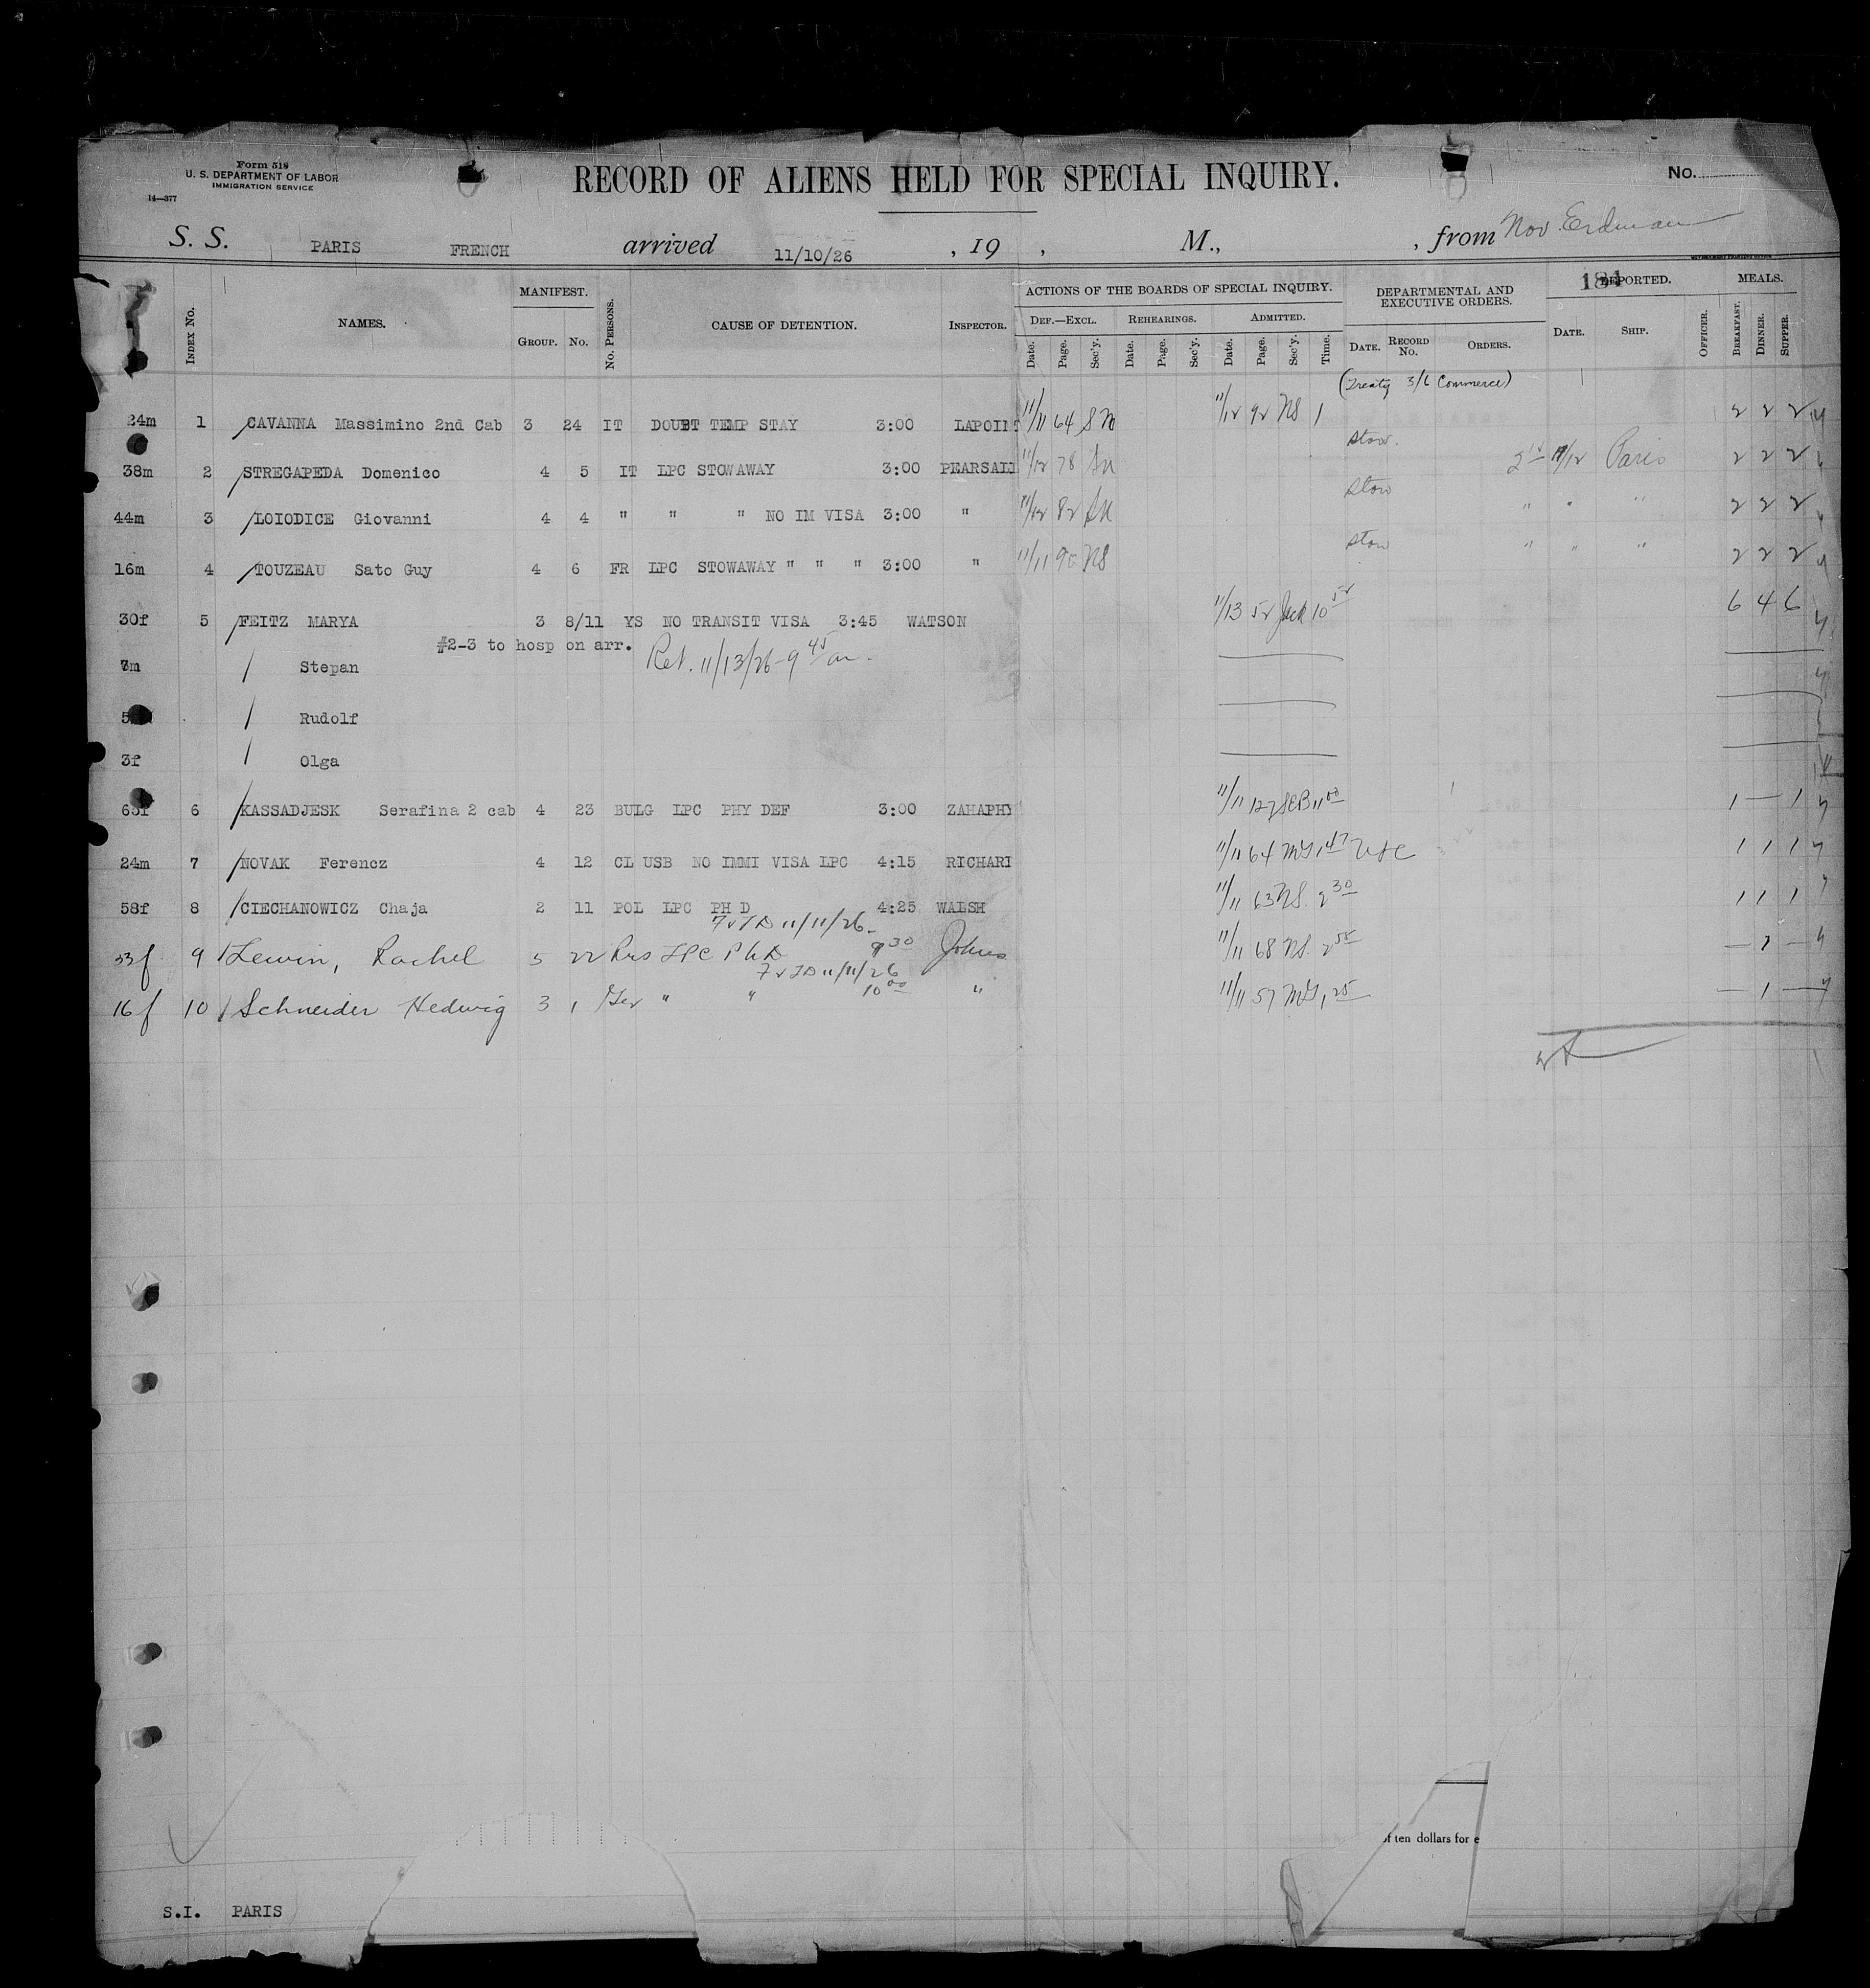 Form 518
U. S. DEPARTMENT OF LABOR
IMMIGRATION SERVICE
14—377
RECORD OF ALIENS HELD FOR SPECIAL INQUIRY.
No.
S. S. PARIS FRENCH arrived 11/10/26 , 19 , M., , from Nov. Erdman
184
Index No. NAMES. MANIFEST. Group. No. No. Persons. CAUSE OF DETENTION. Inspector. ACTIONS OF THE BOARDS OF SPECIAL INQUIRY. DEPARTMENTAL AND EXECUTIVE ORDERS. DEPORTED. MEALS.
Def.—Excl. Rehearings. Admitted.
Date. Page. Sec'y. Date. Page. Sec'y. Date. Page. Sec'y. Time. Date. Record No. Orders. Date. Ship. Officer. Breakfast. Dinner. Supper.
(Treaty 3/6 Commerce)
24m 1 CAVANNA Massimino 2nd Cab 3 24 IT DOUBT TEMP STAY 3:00 LAPOIN 11/11 64 SN 11/12 92 NS 1 2 2 2
Stow.
38m 2 STREGAPEDA Domenico 4 5 IT LPC STOWAWAY 3:00 PEARSALL 11/12 78 SN 11/12 Paris 2 2 2
Stow
44m 3 LOIODICE Giovanni 4 4 " " " NO IM VISA 3:00 " 11/12 82 SN " " " 2 2 2
Stow
16m 4 TOUZEAU Sato Guy 4 6 FR LPC STOWAWAY " " " 3:00 " 11/11 90 NS " " " 2 2 2
30f 5 FEITZ MARYA 3 8/11 YS NO TRANSIT VISA 3:45 WATSON 11/13 52 Jack 10 52 6 4 6
#2-3 to hosp on arr. Ret. 11/13/26 - 9 45 am.
7m Stepan
5 Rudolf
3f Olga
6 KASSADJESK Serafina 2 cab 4 23 BULG LPC PHY DEF 3:00 ZAHAPHY 11/11 127 SEB 11 00 1 — 1
24m 7 NOVAK Ferencz 4 12 CL USB NO IMMI VISA LPC 4:15 RICHARD 11/11 64 MG 1 47 USC 1 1 1
58f 8 CIECHANOWICZ Chaja 2 11 POL LPC PH D 4:25 WALSH 11/11 63 NS. 2 30 1 1 1
11/11/26 -
33f 9 Lewin, Rachel 5 22 Rus LPC Ph D 9 30 Johns 11/11 68 NS. 2 55 — 1 —
11/11/26
16f 10 Schneider Hedwig 3 1 Ger " " 10 00 " 11/11 57 MG 1 25 — 1 —
of ten dollars for e
S.I. PARIS